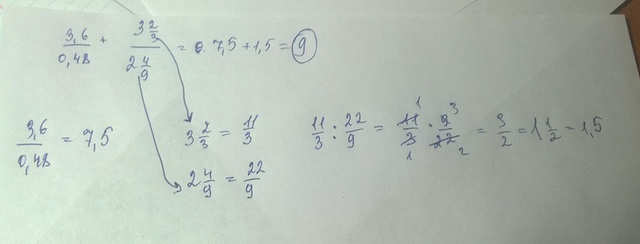 3,6/0,48 + 3 2/3 / 2 4/9 = 7,5 + 1,5 = 9
3,6/0,48 = 7,5
3 2/3 = 11/3
2 4/9 = 22/9
11/3 : 22/9 = 11/3 · 9/22 = 3/2 = 1 1/2 = 1,5